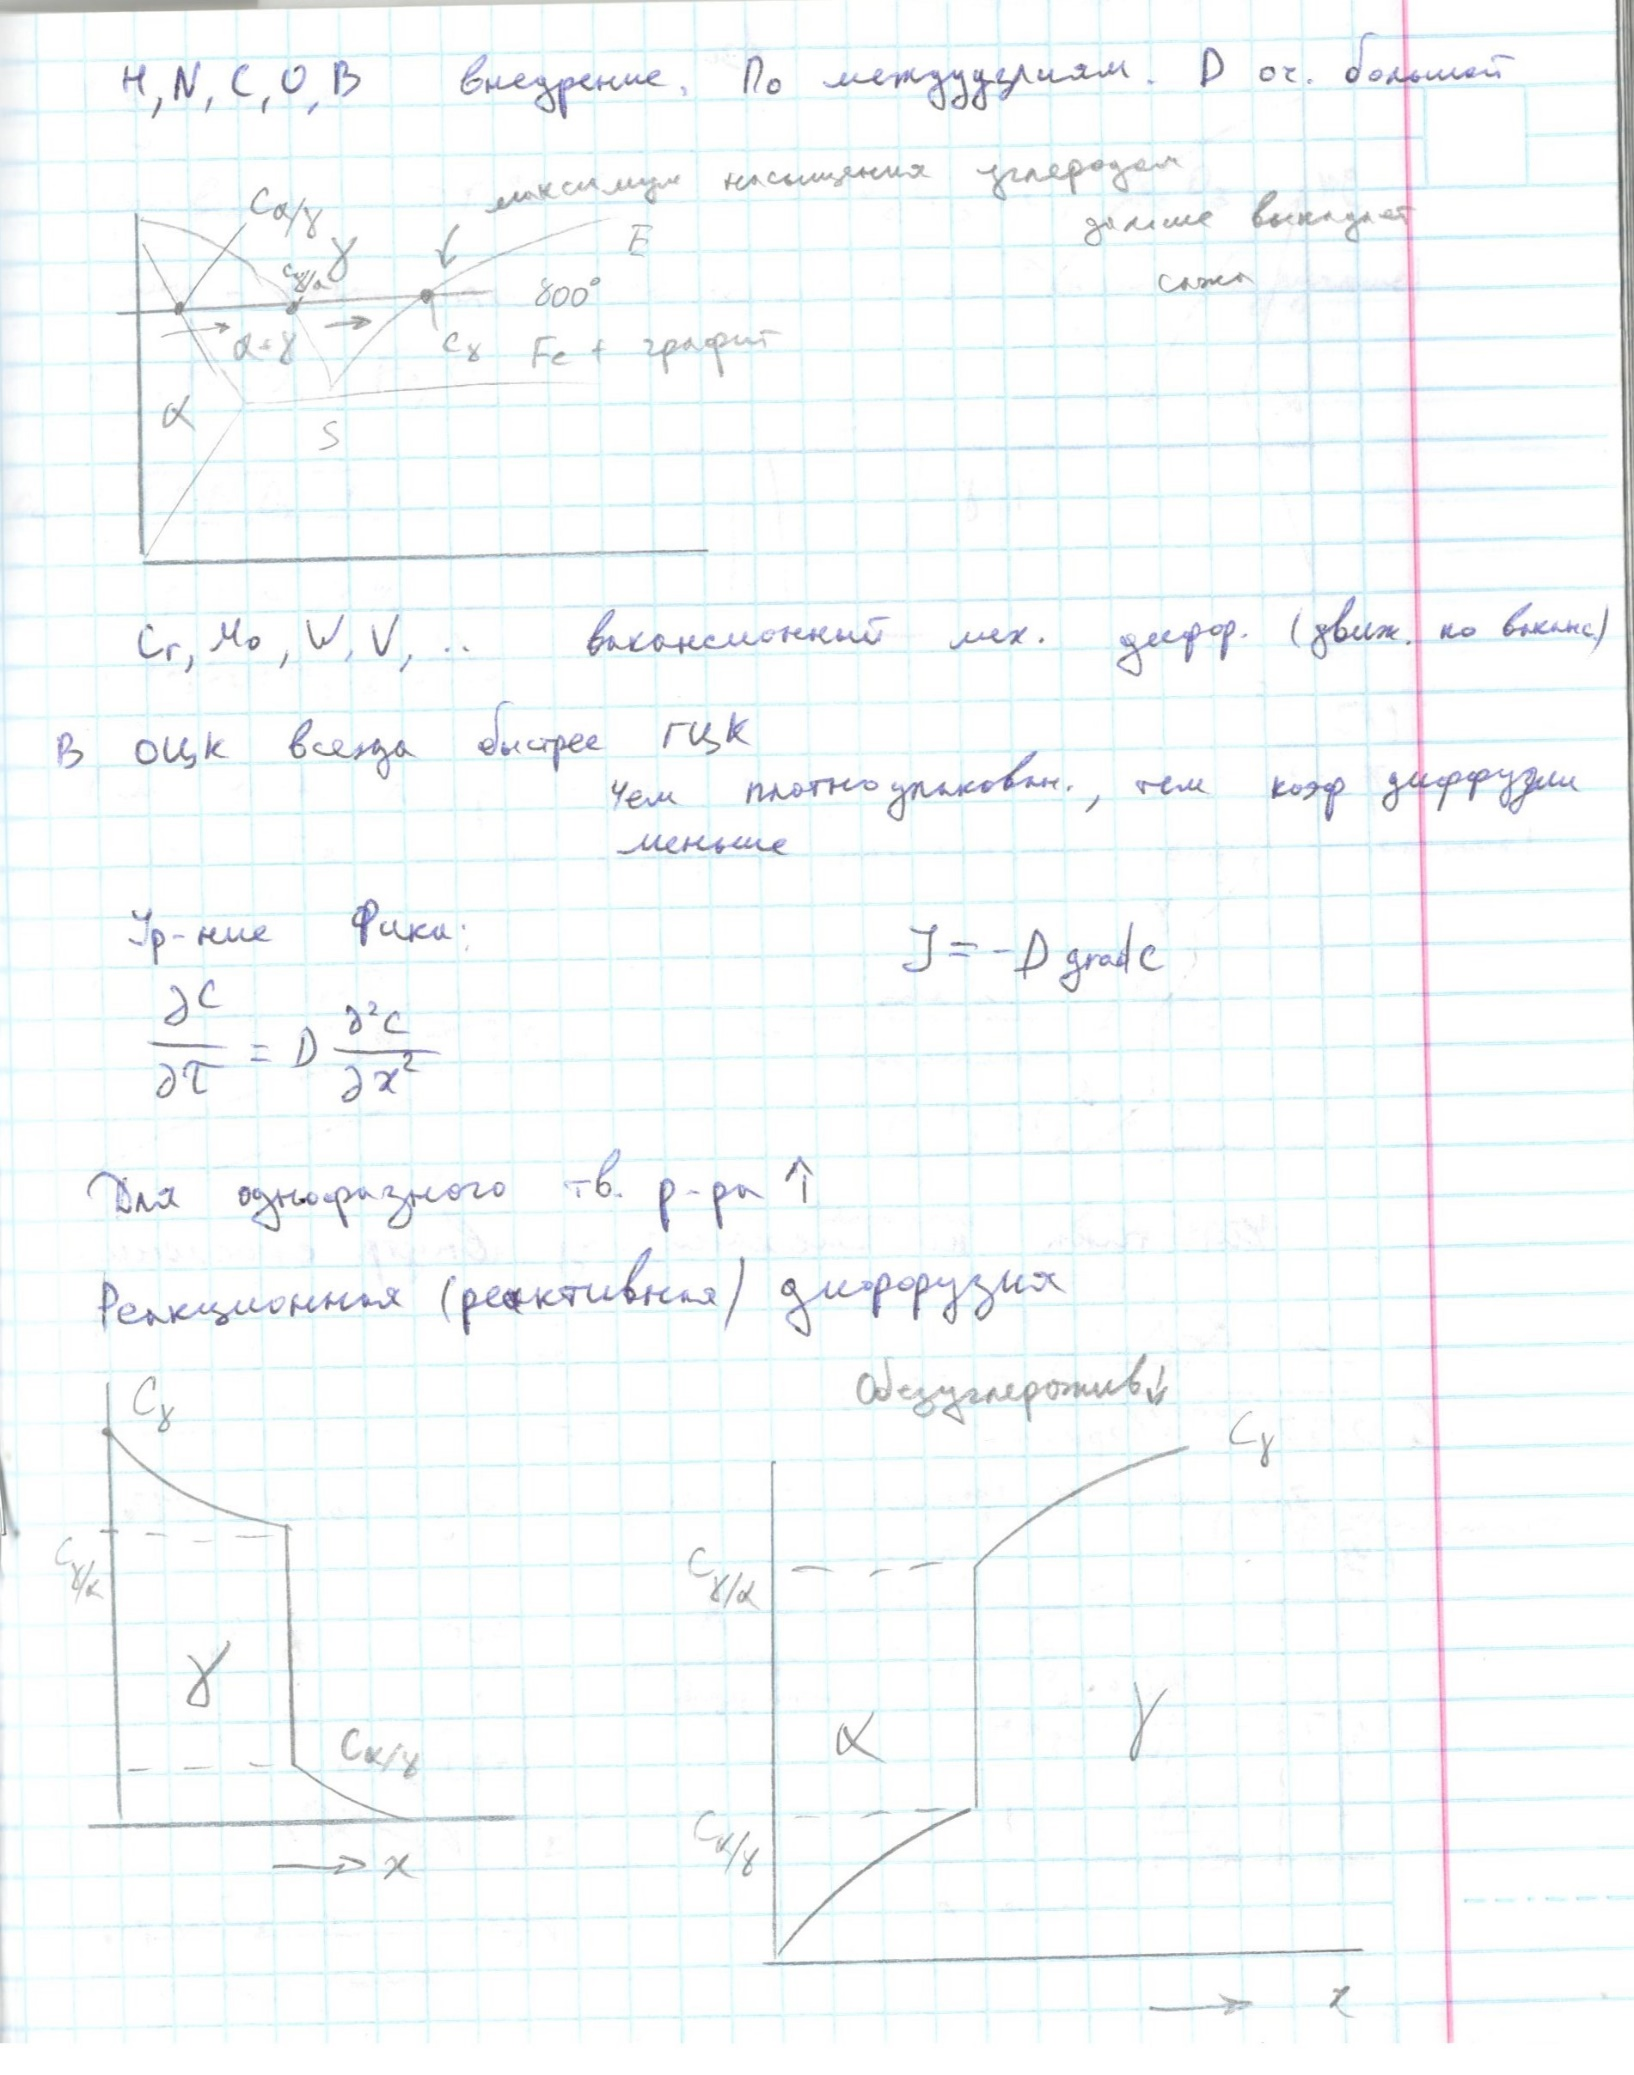 H, N, C, O, B внедрение. По междуузлиям. D оч. большой
максимум насыщения углеродом
дальше выпадает
сажа
Cα/γ
γ
Cγ/α
E
800°
α+γ
Cγ
Fe + графит
α
S
Cr, Mo, W, V, .. вакансионный мех. диффор. (движ. по ваканс.)
В ОЦК всегда быстрее ГЦК
Чем плотноупакован., тем коэф диффузии
меньше
Ур-ние Фика:
J = -D grad C
∂C/∂τ = D ∂²C/∂x²
Для однофазного тв. р-ра ↑
Реакционная (реактивная) диффузия
Обезуглерожив ↓
Cγ
Cγ/α
γ
Cα/γ
→ x
Cγ
Cγ/α
α
γ
Cα/γ
→ x